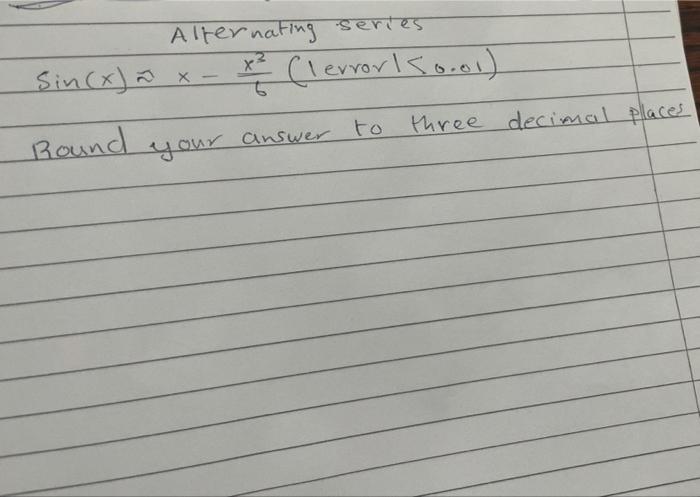 Alternating series
Sin(x) ≈ x - x³/6 (|error| < 0.01)
Round your answer to three decimal places